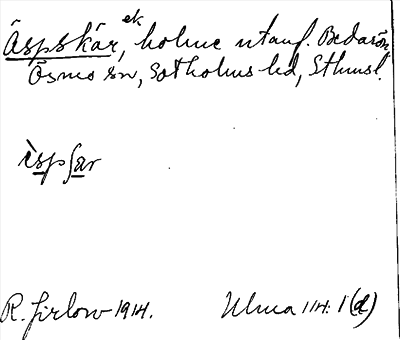 Äspskär, ek holme utanf. Bedarön
Ösmo sn, Sotholms hd, Sthmsl.
ı̀spʃär
R. Jirlow 1914. Ulma 114:1 (d)